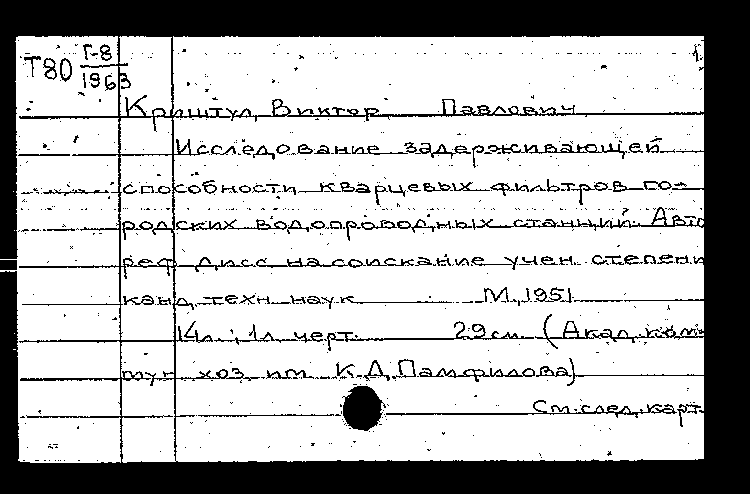 Т80 Г-8
1963
1.
Криштул, Виктор Павлович
Исследование задерживающей
способности кварцевых фильтров го-
родских водопроводных станций. Авто
реф дисс на соискание учен. степени
канд. техн наук М., 1951
14л.; 1л. черт. 29см (Акад. ком
мун хоз им К.Д. Памфилова)
См. след. карт.